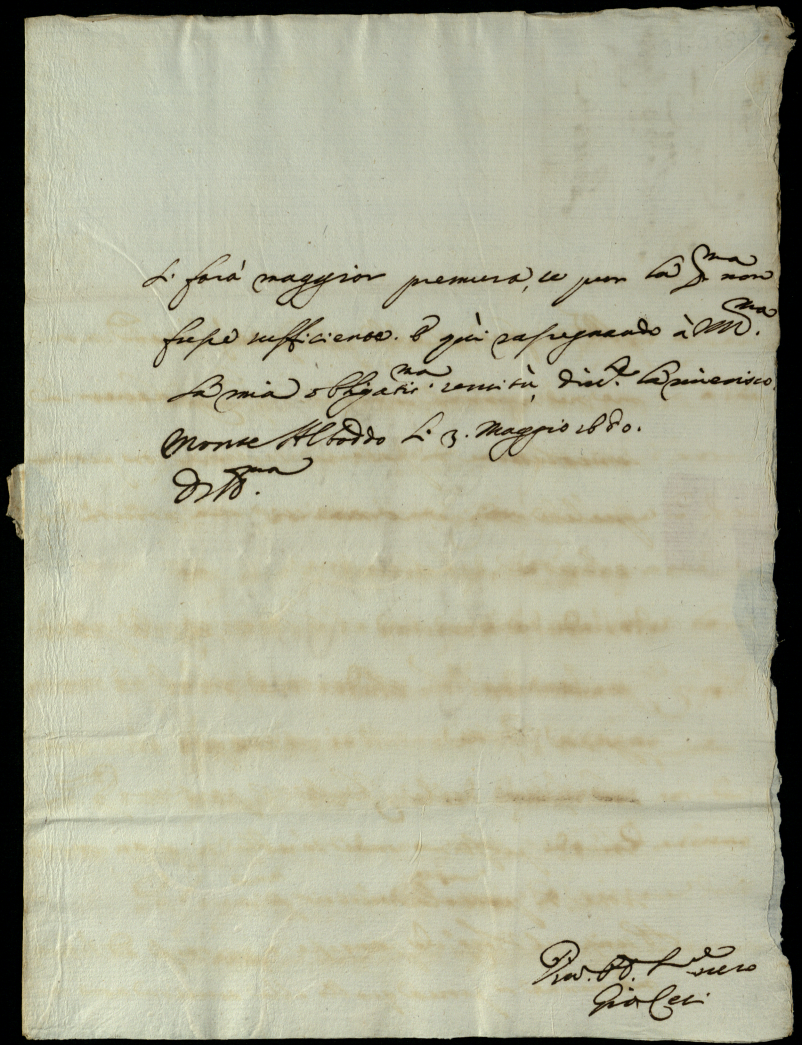 si farà maggior premura, se pur la p.ma non
fusse sufficiente. E quì rassegnando à VS.
la mia obligatis.ma servitù, la riverisco.
Monte Alboddo li 3. Maggio 1680.
Di VS.
Vero
Gio: Ceci